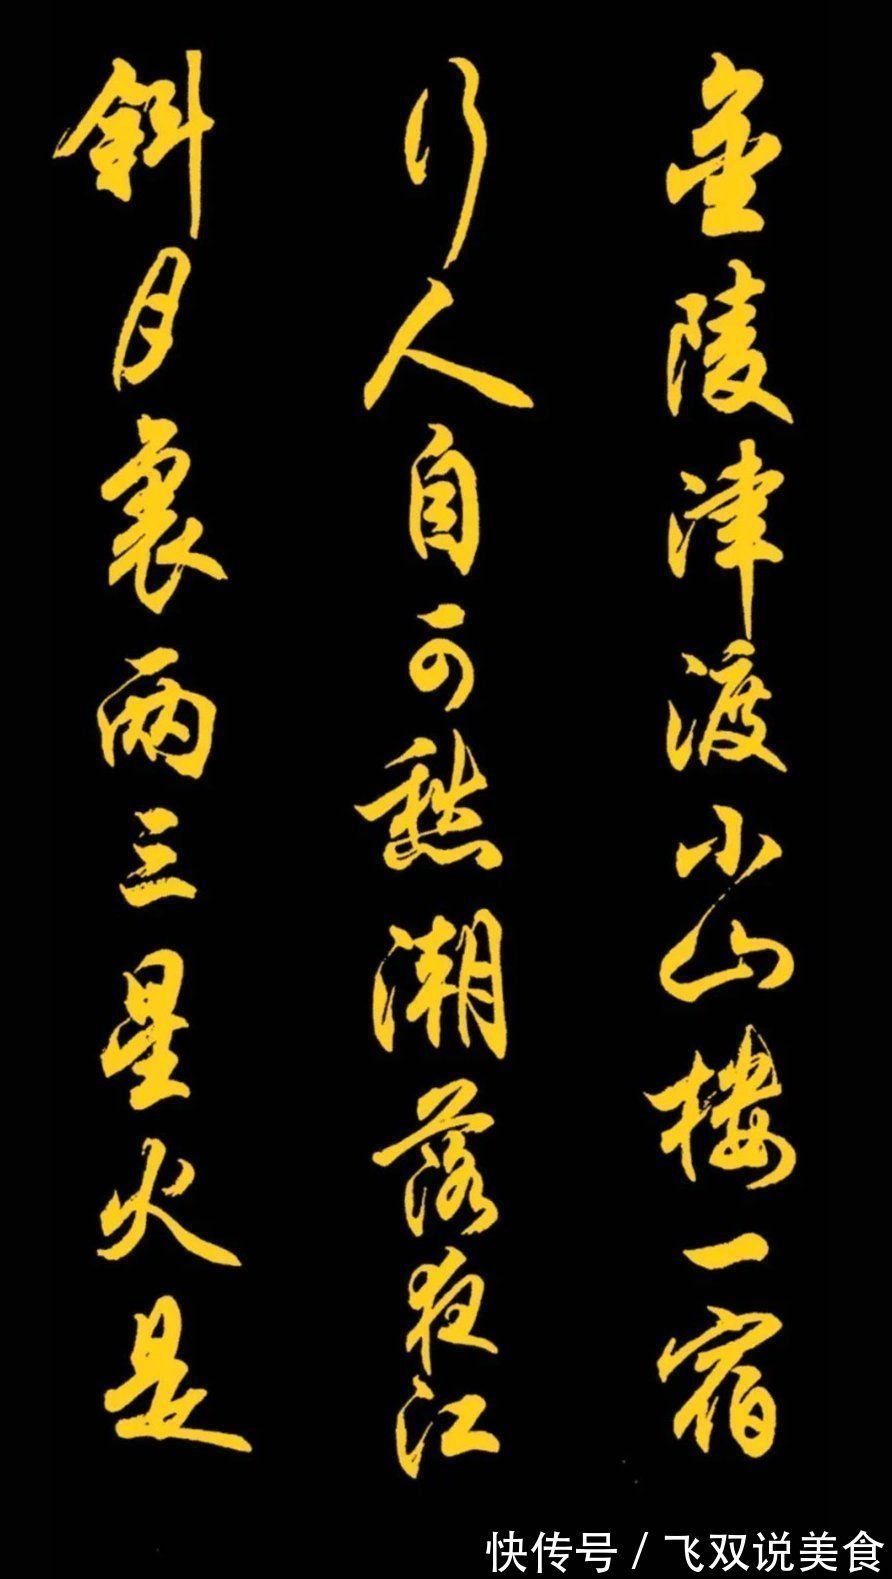 金陵津渡小山楼一宿
行人自可愁潮落夜江
斜月裏两三星火是
快传号 / 飞双说美食